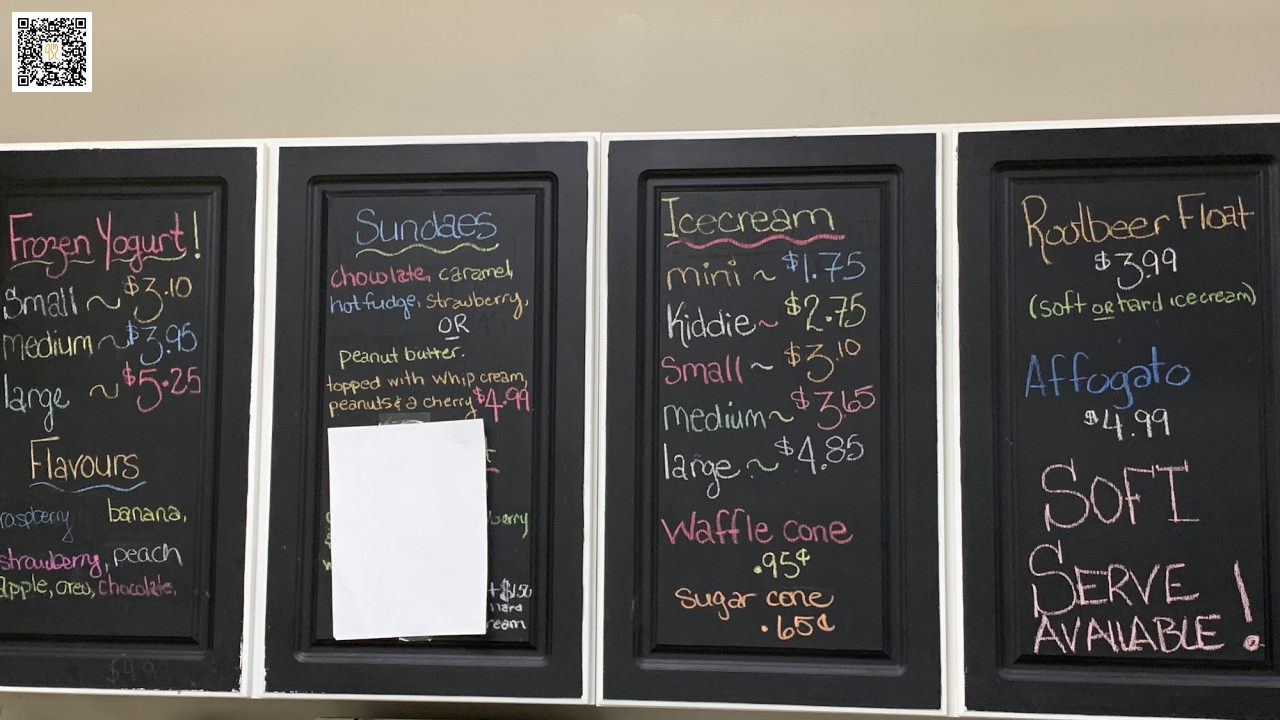 Frozen Yogurt!
Small ~ $3.10
medium ~ $3.95
large ~ $5.25
Flavours
raspberry banana,
strawberry, peach
apple, oreo, chocolate.
Sundaes
chocolate, caramel,
hot fudge, strawberry,
OR
peanut butter.
topped with whip cream,
peanuts & a cherry $4.99
berry
+ $1.50
Icecream
mini ~ $1.75
Kiddie ~ $2.75
Small ~ $3.10
medium ~ $3.65
large ~ $4.85
Waffle cone
.95¢
sugar cone
.65¢
Rootbeer Float
$3.99
(soft or hard icecream)
Affogato
$4.99
SOFT
SERVE
AVAILABLE!